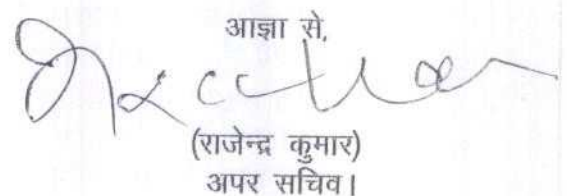 आज्ञा से,
(राजेन्द्र कुमार)
अपर सचिव।